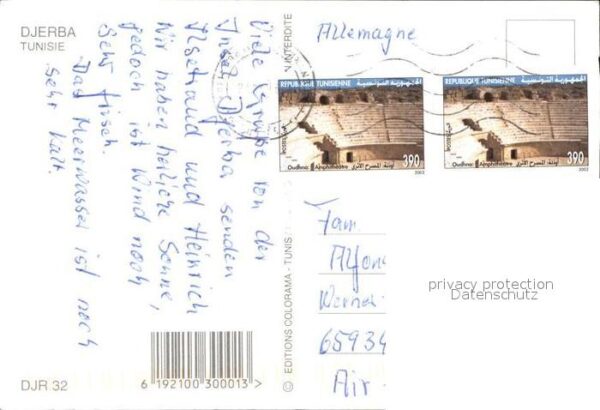 DJERBA
TUNISIE
Viele Grüße von der
Insel Djerba senden
Ilsetraud und Heinrich
Wir haben heitere Sonne,
jedoch ist Wind noch
sehr frisch.
Das Meerwasser ist noch
sehr kalt.
DJR 32
6 192100 300013 >
© EDITIONS COLORAMA - TUNIS
N INTERDITE
Allemagne
REPUBLIQUE TUNISIENNE الجمهورية التونسية
Oudhna : Amphithéatre أوذنة: المسرح الأثري
390
2002
REPUBLIQUE TUNISIENNE الجمهورية التونسية
Oudhna : Amphithéatre أوذنة: المسرح الأثري
390
2002
Fam.
Alfons
Werner
65934
Air
privacy protection
Datenschutz